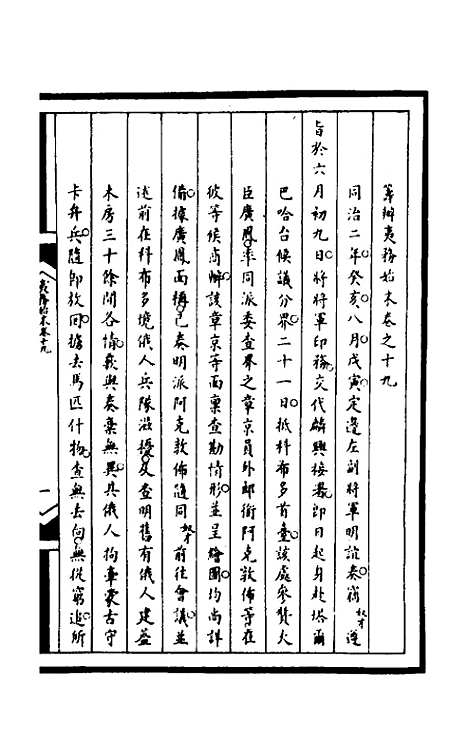 籌辦夷務始末卷之十九
同治二年癸亥八月戊寅定邊左副將軍明誼奏竊奴才遵
旨於六月初九日將將軍印務交代麟興接署即日起身赴塔爾
巴哈台候議分界二十一日抵科布多首臺該處參贊大
臣廣鳳率同派委查界之章京員外郎銜阿克敦佈等在
彼等候商辦該章京等面稟查勘情形並呈繪圖均尚詳
備據廣鳳面稱已奏明派阿克敦佈隨同奴才前往會議並
述前在科布多境俄人兵隊滋擾及查明舊有俄人建蓋
木房三十餘間各情義與奏稟無異其俄人拘牽蒙古守
卡弁兵隨即放回搶去馬匹什物查無去向無從窮追所
夷務始末卷十九
一